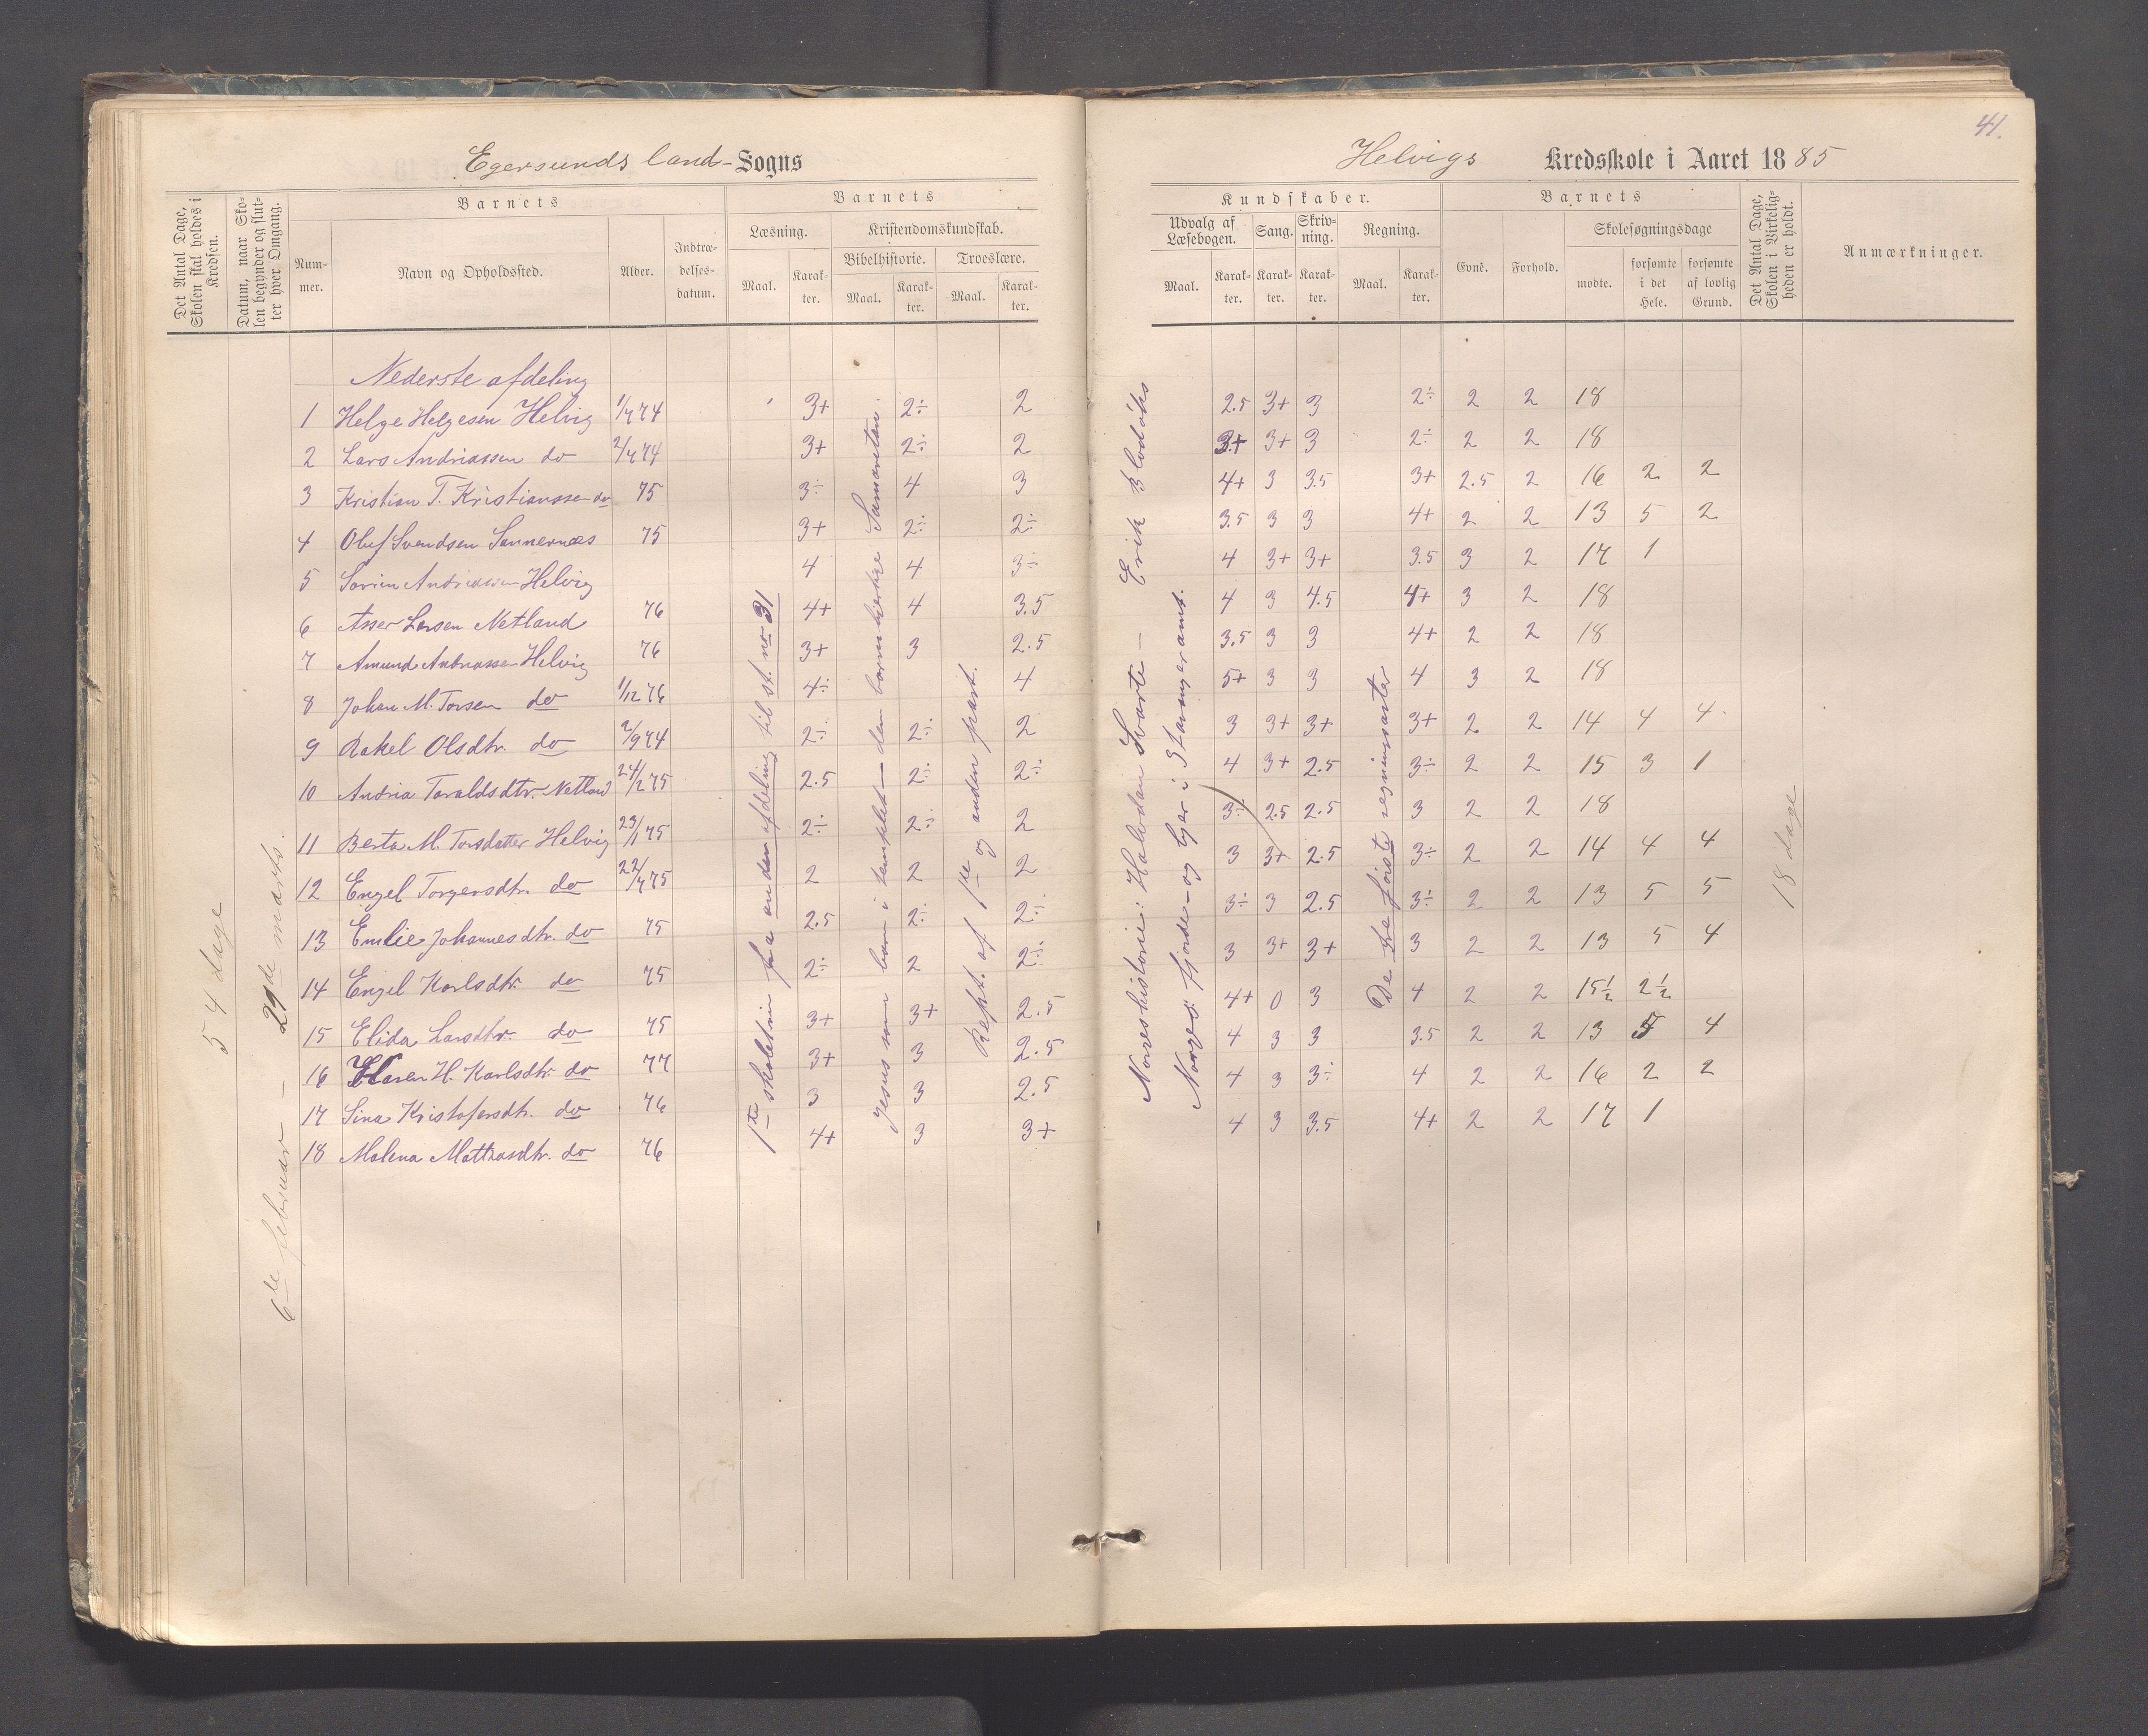 41.
Egersunds land-Sogns
Helvigs Kredsskole i Aaret 1885
Det Antal Dage, Skolen skal holdes i Kredsen.
Datum, naar Skolen begynder og slutter hver Omgang.
Barnets
Nummer.
Navn og Opholdssted.
Alder.
Indtrædelsesdatum.
Barnets
Læsning.
Maal.
Karakter.
Kristendomskundskab.
Bibelhistorie.
Maal.
Karakter.
Troeslære.
Maal.
Karakter.
Kundskaber.
Udvalg af Læsebogen.
Maal.
Karakter.
Sang.
Karakter.
Skrivning.
Karakter.
Regning.
Maal.
Karakter.
Barnets
Evne.
Forhold.
Skolesøgningsdage
mødte.
forsømte i det Hele.
forsømte af lovlig Grund.
Det Antal Dage, Skolen i Virkeligheden er holdt.
Anmærkninger.
Nederste afdeling
1 Helge Helgesen Helvig 1/7 74 3+ 2÷ 2 2.5 3+ 3 2÷ 2 2 18
2 Lars Andriassen do 2/7 74 3+ 2÷ 2 3+ 3+ 3 2÷ 2 2 18
3 Kristian T. Kristianssen do 75 3÷ 4 3 4+ 3 3.5 3+ 2.5 2 16 2 2
4 Oluf Svendsen Sannernæs 75 3+ 2÷ 2÷ 3.5 3 3 4+ 2 2 13 5 2
5 Sørien Andriassen Helvig 4 4 3÷ 4 3+ 3+ 3.5 3 2 17 1
6 Asser Larsen Netland 76 4+ 4 3.5 4 3 4.5 4+ 3 2 18
7 Amund Andriassen Helvig 76 3+ 3 2.5 3.5 3 3 4+ 2 2 18
8 Johan M. Torsen do 1/12 76 4÷ 4 5+ 3 3 4 3 2 18
9 Rakel Olsdtr. do 2/9 74 2÷ 2÷ 2 3 3+ 3+ 3+ 2 2 14 4 4
10 Andria Taraldsdtr. Netland 24/2 75 2.5 2÷ 2÷ 4 3+ 2.5 3÷ 2 2 15 3 1
11 Berta M. Torsdatter Helvig 23/1 75 2÷ 2÷ 2 3÷ 2.5 2.5 3 2 2 18
12 Engel Torgersdtr. do 22/7 75 2 2 2 3 3+ 2.5 3÷ 2 2 14 4 4
13 Emlie Johannesdtr. do 75 2.5 2÷ 2÷ 3÷ 3 2.5 3÷ 2 2 13 5 5
14 Engel Karlsdtr. do 75 2÷ 2 2÷ 3 3+ 3+ 3 2 2 13 5 4
15 Elida Larsdtr. do 75 3+ 3+ 2.5 4+ 0 3 4 2 2 15½ 2½
16 Karen H. Karlsdtr. do 77 3+ 3 2.5 4 3 3 3.5 2 2 13 5 4
17 Sina Kristofersdtr. do 76 3 3 2.5 4 3 3÷ 4 2 2 16 2 2
18 Malena Mattiasdtr. do 76 4+ 3 3+ 4 3 3.5 4+ 2 2 17 1
54 dage
6te februar – 29de marts.
1ste skoletrin fra anden afdeling til st. no 31
Jesus som barn i templet – den barmhertige Samaritan.
Rept. af 1ste og anden part.
Norveshistorie: Halvdan Svarte – Erik Blodøks
Norges fjorde- og byer i Stavanger amt.
De tre første regningsarter
18 dage